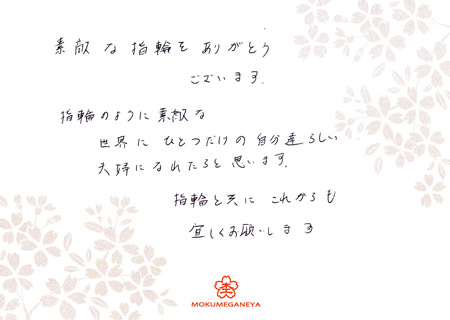 素敵な指輪をありがとう
ございます。
指輪のように素敵な
世界にひとつだけの自分達らしい
夫婦になれたらと思います。
指輪と共にこれからも
宜しくお願いします
MOKUMEGANEYA